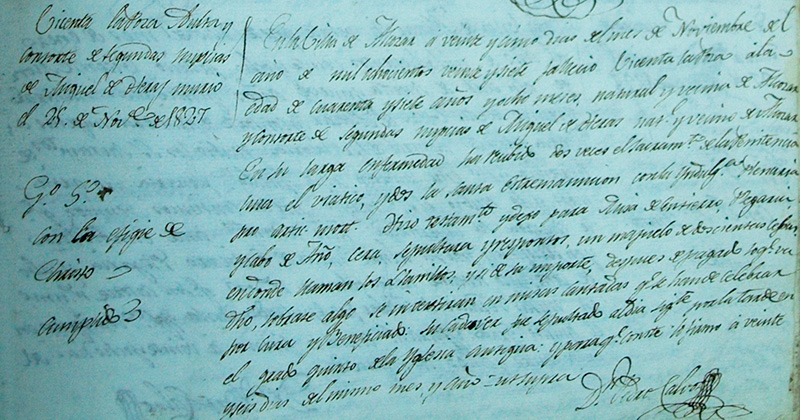 Vicenta Lattora Dutra y
consorte de segundas nupcias
de Miguel de Dieras murio
el 25 de Nov.e de 1827
G.o 5.o
con la efigie de
Christo
Cumplido
En la Villa de Alcozar a veinte y cinco dias del mes de Noviembre del
año de mil ochocientos veinte y siete falecio Vicenta Lattora a la
edad de cuarenta y siete años y ocho meses, natural y vecina de
y consorte de segundas nupcias de Miguel de Dieras nat.l y vecino de
En su larga enfermedad ha recibido dos veces el Sacram.to de la Penitencia
una el viatico, y dos la Santa Extremauncion con la Indulg.a plenaria
pro artic. mort. Hizo testam.to y dejo para Misa de entierro, Novena
y Cabo de Año, cera, sepultura y responsos, un majuelo de doscientas cepas
en donde llaman los y de su importe, despues de pagado lo q.e va
dho, sobrase algo se invertiran en misas cantadas q.e se han de celebrar
por Cura y Beneficiado: su cadaver fue sepultado al dia sig.te por la tarde en
el grado quinto de la Yglesia antigua: y para q.e conste lo firmo a veinte
y seis dias del mismo mes y año ut supra
D.n Pedro Calvo